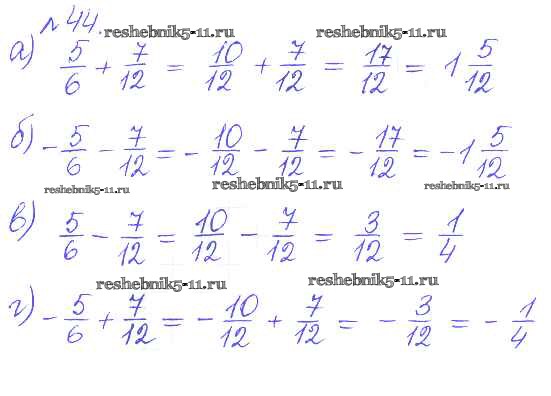 №44.
reshebnik5-11.ru reshebnik5-11.ru
а) 5/6 + 7/12 = 10/12 + 7/12 = 17/12 = 1 5/12
б) - 5/6 - 7/12 = - 10/12 - 7/12 = - 17/12 = -1 5/12
reshebnik5-11.ru reshebnik5-11.ru reshebnik5-11.ru
в) 5/6 - 7/12 = 10/12 - 7/12 = 3/12 = 1/4
reshebnik5-11.ru reshebnik5-11.ru
г) - 5/6 + 7/12 = - 10/12 + 7/12 = - 3/12 = - 1/4